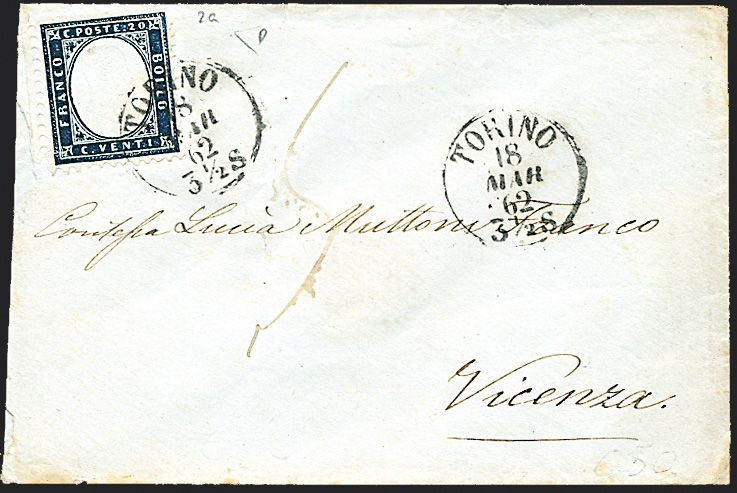 2a
C. POSTE. 20
FRANCO
BOLLO
C. VENTI
TORINO
18
MAR
62
3½S
TORINO
18
MAR
62
3½S
Contessa Lucia Muttoni Franco
Vicenza.